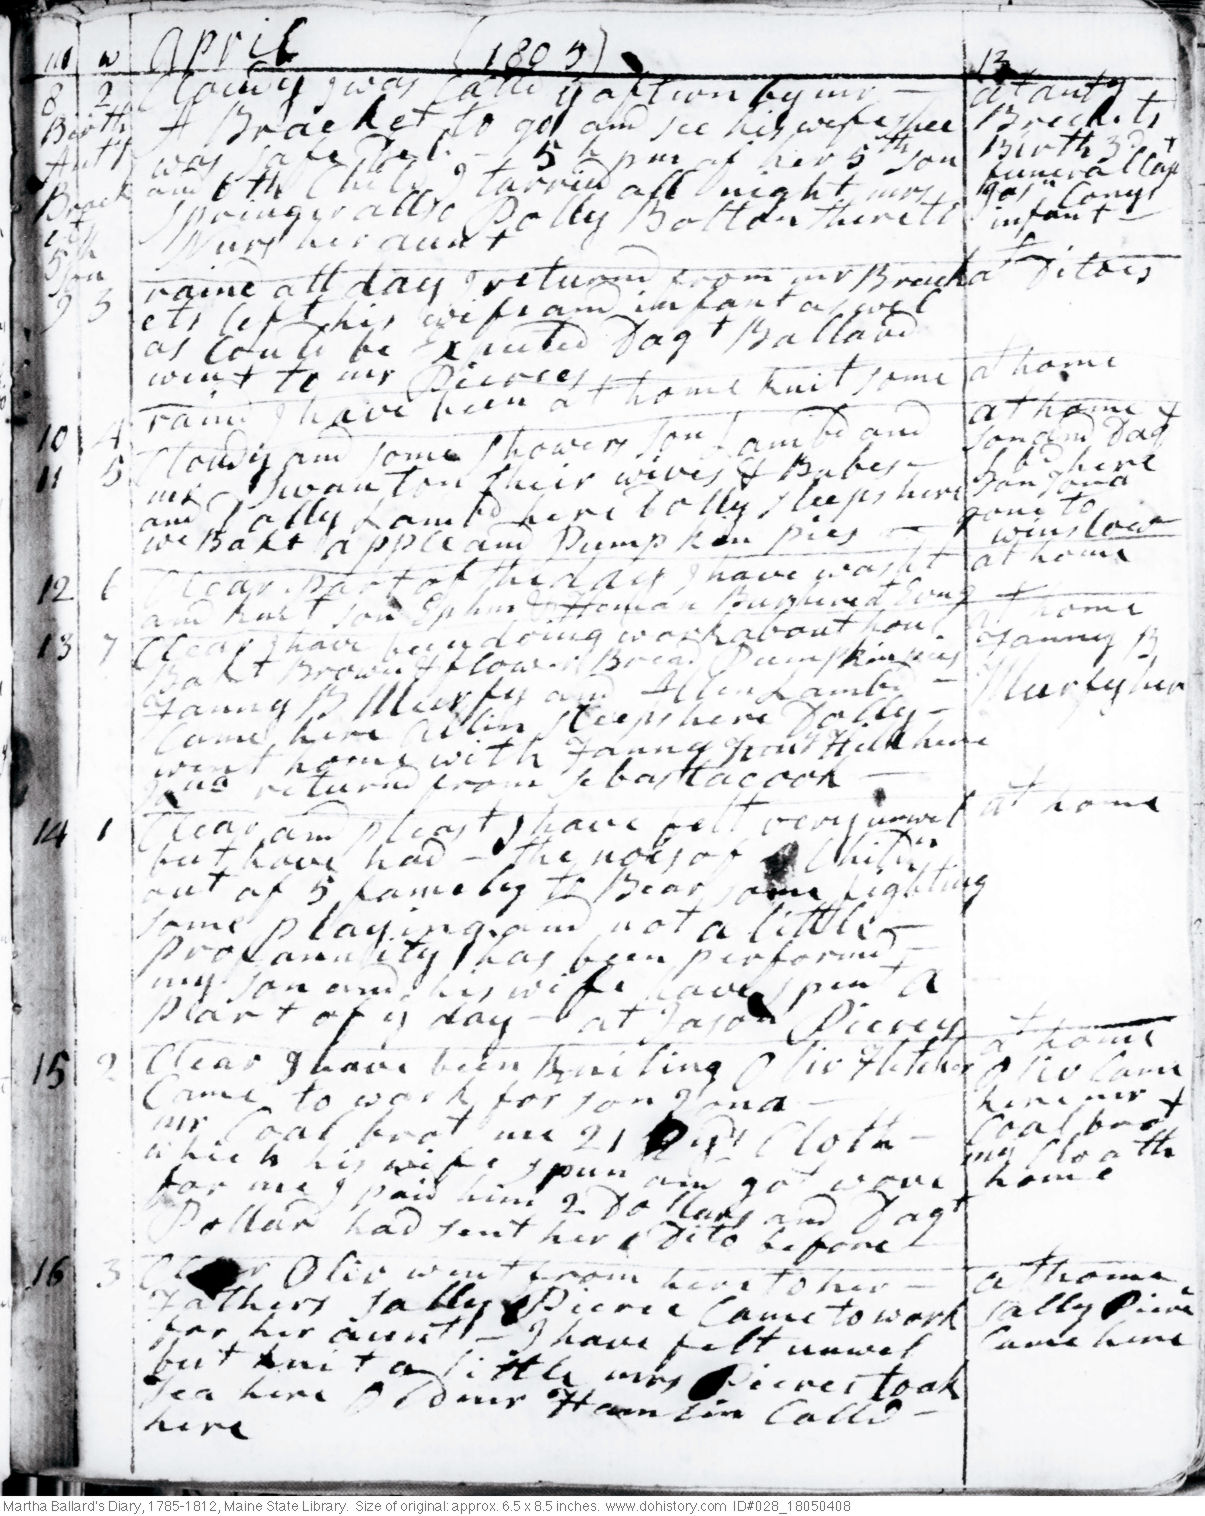 m w April (1805) 13
8 2 Cloudy I was Calld y aftern by mr - at anty
Birth A Bracket to go and see his wife shee Breckets
Anty was safe Del - 5 h pm of her 5th son Birth 3d
Brack and 6th Child I tarried all night mrs funeral Cap
ets Springer allso Polly Bolton there to Conys
5th Nurs her aunt infant -
son
9 3 raind all day I returnd from mr Brack at Ditoes
ets left his wife and infant as wel
as Could be Expected Dagt Ballard
went to mr Pierces
10 4 raind I have been at home knit some at home
11 5 Cloudy and some showers son Lambd and at home
mr Swanton their wives & Babes son and Dagt
and Dolly Lambd here Dolly sleeps here Lbd here
we Bakt apple and Pumpkin pies - son Jona
gone to
winslow
12 6 Clear part of the day I have washt at home
and knit son Ephm & Homan Burshered Song
13 7 Clear I have been doing work about hous at home
Bakt Brown & flower Bread Pumpkin pies Fanny B
Fanny B Murfey and Allin Lambd - Murfey her
Came here Allin sleeps here Dolly -
went home with Fanny here
Jona returnd from sebastacook -
14 1 Clear and pleast I have felt very unwel at home
but have had - the nois of Childn
out of 5 fameley to Bear some fighting
some playing and not a little -
profannity has been performd -
my son and his wife have spent a
part of y day - at Jason Pierces
15 2 Clear I have been knitting Oliv Fletcher at home
Came to work for son Jona - Oliv Came
mr Coal brot me 21 yds Cloth - here mr
which his wife spun and got wove Coal brot
for me I paid him 2 Dollars and Dagt my Cloath
Pollard had sent her 1 Dito before home
16 3 Clear Oliv went from here to her - at home
Fathers Sally Pierce Came to work Sally Pierce
for her aunt - I have felt unwel Came here
but knit a little mrs Pierces took
Tea here Old mr Hamlin Calld -
here
Martha Ballard's Diary, 1785-1812, Maine State Library. Size of original: approx. 6.5 x 8.5 inches. www.dohistory.com ID#028_18050408